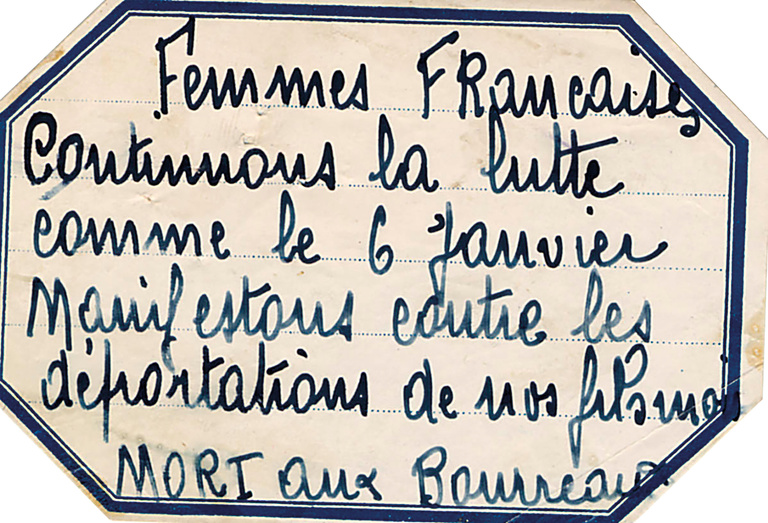 Femmes FRancaises
Continuons la lutte
comme le 6 Janvier
Manifestons contre les
déportations de nos fils
MORT aux Bourreaux